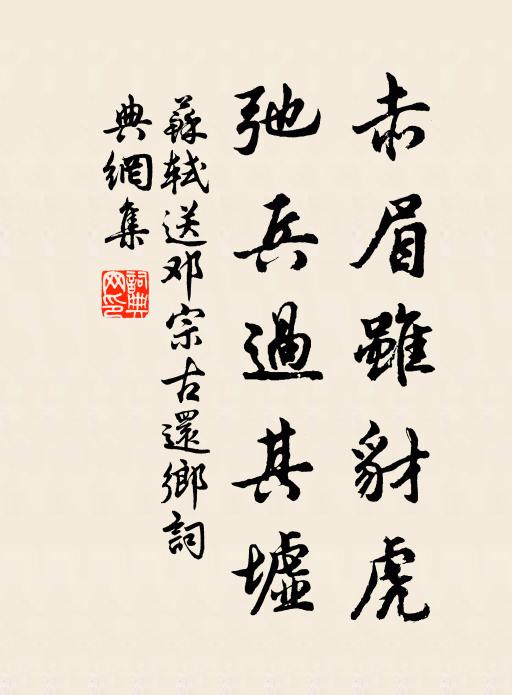 赤眉雖豺虎
弛兵過其墟
蘇軾送邓宗古還鄉詞
典網集
詞典网印